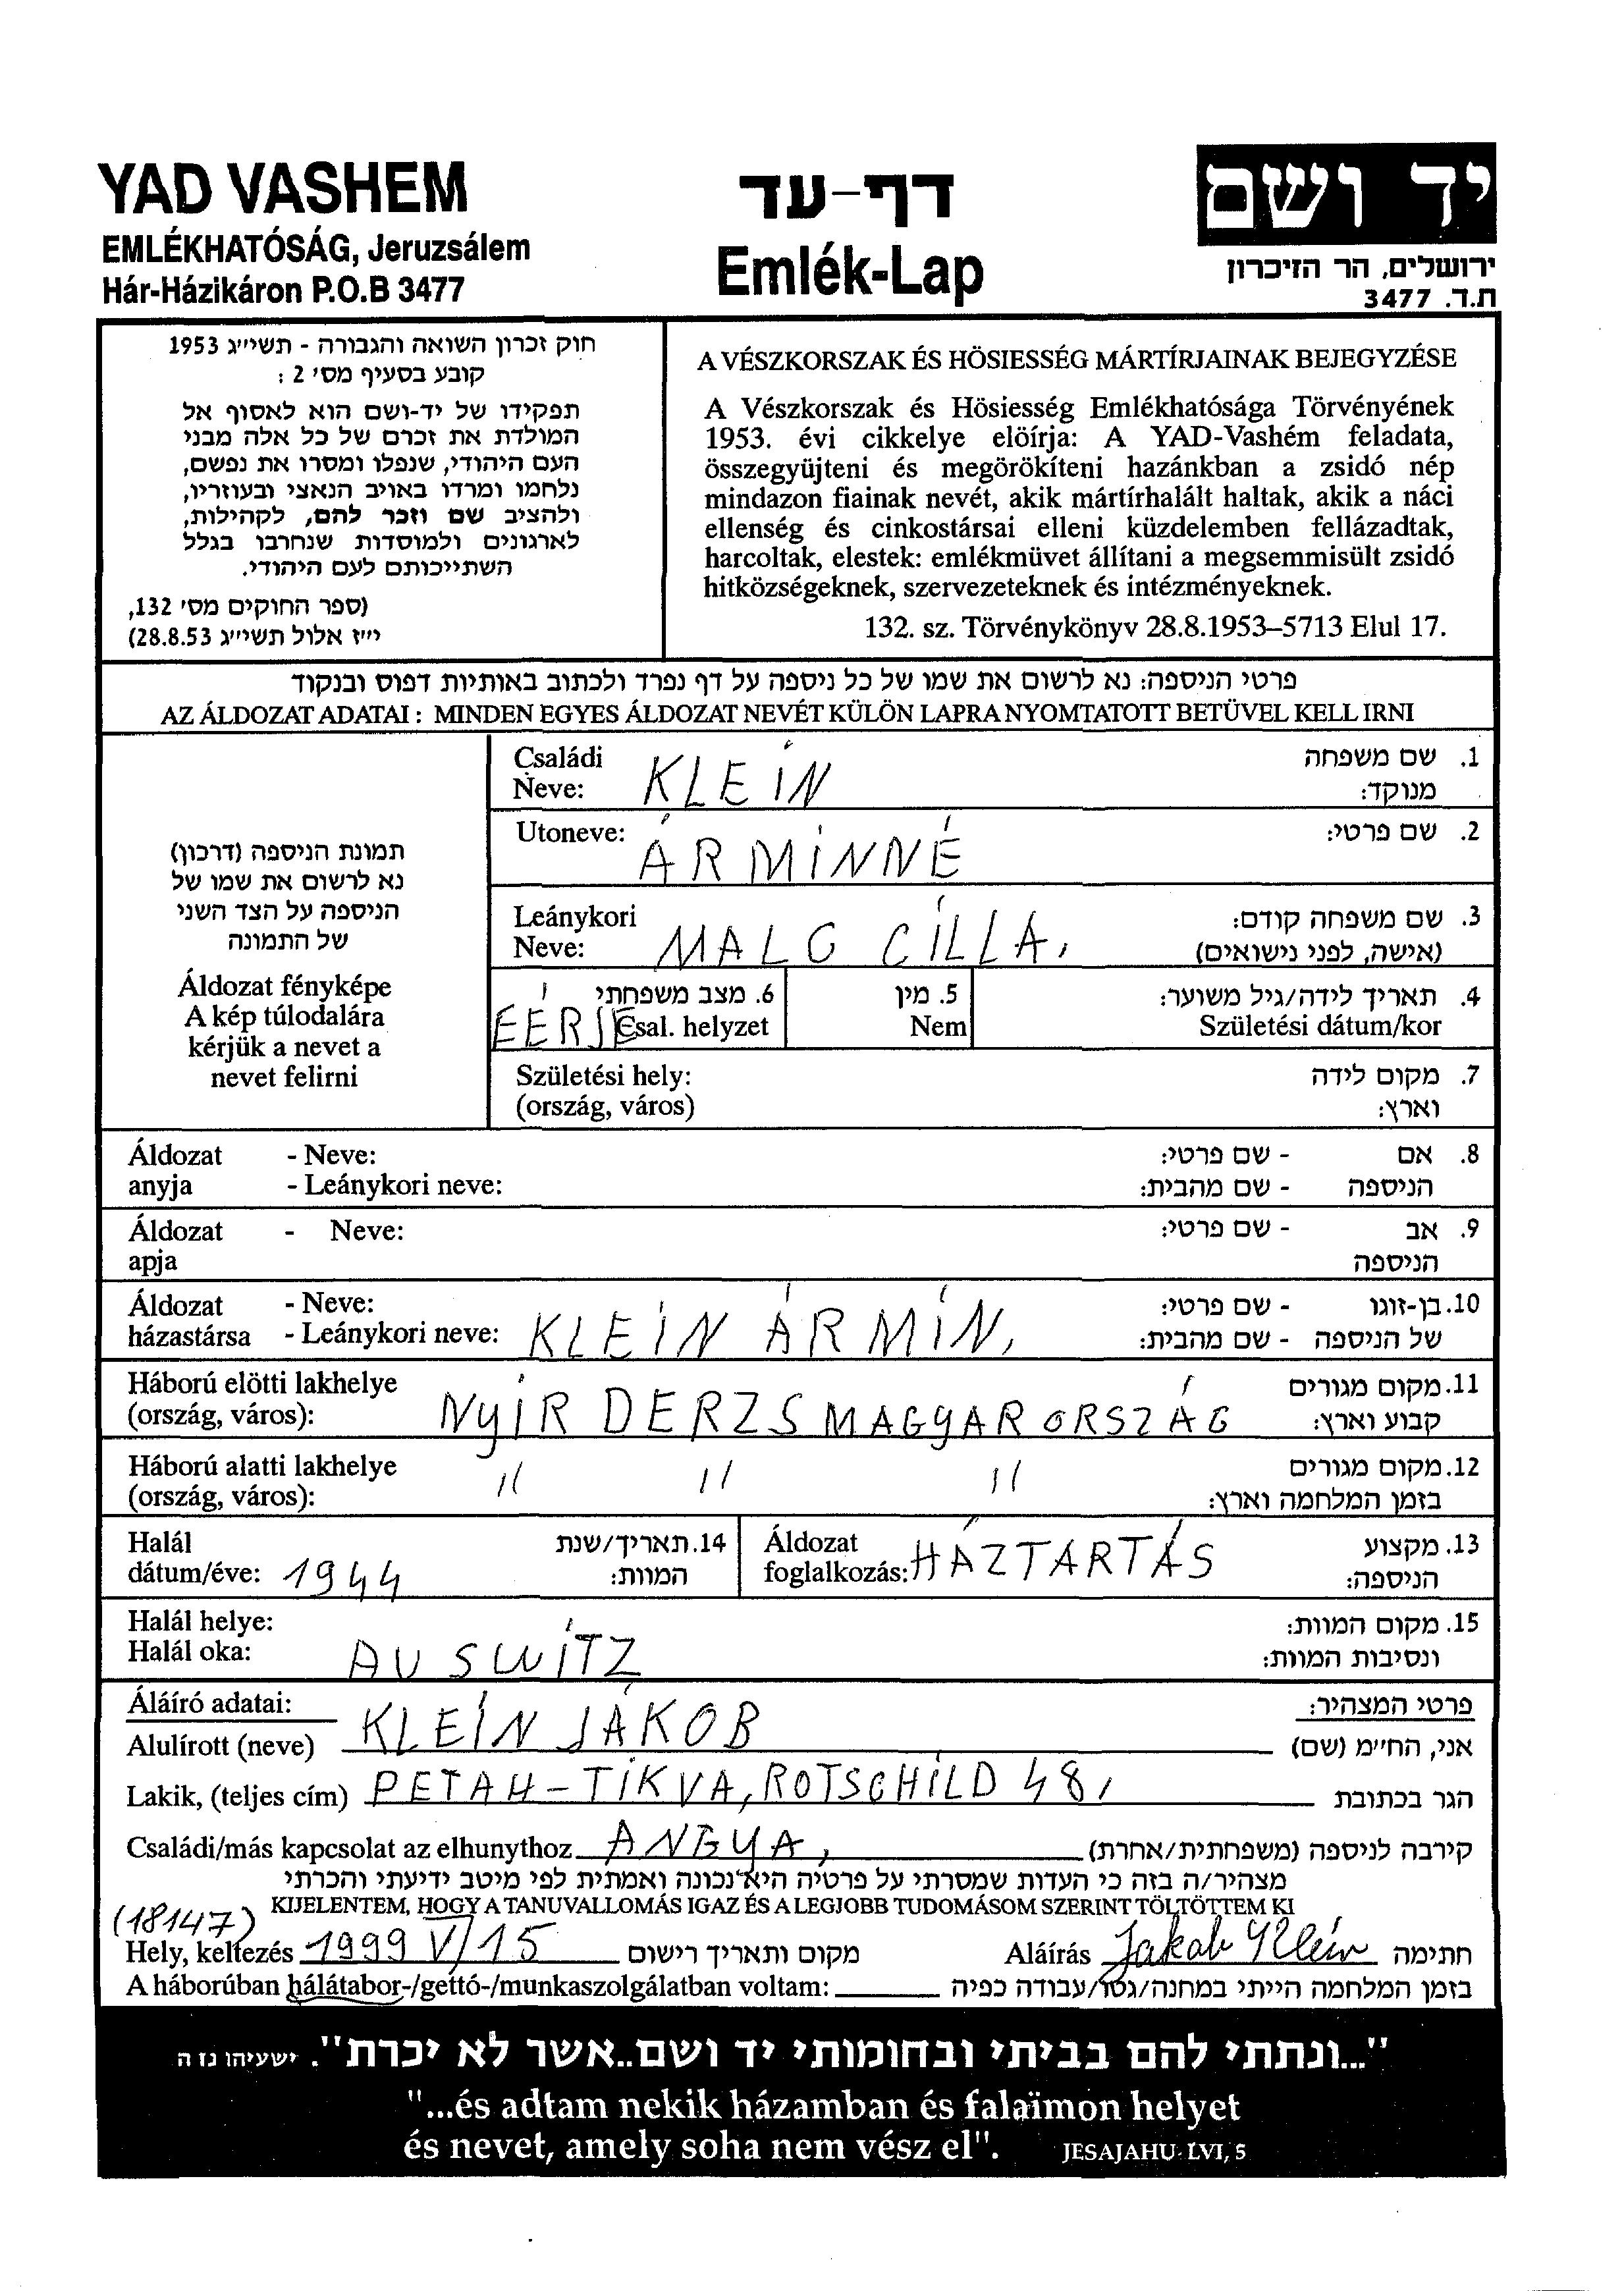 YAD VASHEM
EMLÉKHATÓSÁG, Jeruzsálem
Hár-Házikáron P.O.B 3477
דף-עד
Emlék-Lap
יד ושם
ירושלים, הר הזיכרון
ת.ד. 3477
חוק זכרון השואה והגבורה - תשי״ג 1953
קובע בסעיף מס׳ 2 :
תפקידו של יד-ושם הוא לאסוף אל
המולדת את זכרם של כל אלה מבני
העם היהודי, שנפלו ומסרו את נפשם,
נלחמו ומרדו באויב הנאצי ובעוזריו,
ולהציב שם וזכר להם, לקהילות,
לארגונים ולמוסדות שנחרבו בגלל
השתייכותם לעם היהודי.
(ספר החוקים מס׳ 132,
י״ז אלול תשי״ג 28.8.53)
A VÉSZKORSZAK ÉS HÖSIESSÉG MÁRTÍRJAINAK BEJEGYZÉSE
A Vészkorszak és Hösiesség Emlékhatósága Törvényének
1953. évi cikkelye elöírja: A YAD-Vashém feladata,
összegyüjteni és megörökíteni hazánkban a zsidó nép
mindazon fiainak nevét, akik mártírhalált haltak, akik a náci
ellenség és cinkostársai elleni küzdelemben fellázadtak,
harcoltak, elestek: emlékmüvet állítani a megsemmisült zsidó
hitközségeknek, szervezeteknek és intézményeknek.
132. sz. Törvénykönyv 28.8.1953–5713 Elul 17.
פרטי הניספה: נא לרשום את שמו של כל ניספה על דף נפרד ולכתוב באותיות דפוס ובנקוד
AZ ÁLDOZAT ADATAI : MINDEN EGYES ÁLDOZAT NEVÉT KÜLÖN LAPRA NYOMTATOTT BETÜVEL KELL IRNI
תמונת הניספה (דרכון)
נא לרשום את שמו של
הניספה על הצד השני
של התמונה
Áldozat fényképe
A kép túlodalára
kérjük a nevet a
nevet felirni
Családi
Neve: KLEIN
1. שם משפחה
מנוקד:
Utoneve: ÁRMINNÉ
2. שם פרטי:
Leánykori
Neve: MALG CILLA,
3. שם משפחה קודם:
(אישה, לפני נישואים)
6. מצב משפחתי
Csal. helyzet
5. מין
Nem
4. תאריך לידה/גיל משוער:
Születési dátum/kor
Születési hely:
(ország, város)
7. מקום לידה
וארץ:
Áldozat - Neve:
anyja - Leánykori neve:
8. אם - שם פרטי:
הניספה - שם מהבית:
Áldozat - Neve:
apja
9. אב - שם פרטי:
הניספה
Áldozat - Neve:
házastársa - Leánykori neve: KLEIN ÁRMIN,
10. בן-זוגו - שם פרטי:
של הניספה - שם מהבית:
Háború elötti lakhelye
(ország, város): NYIR DERZS MAGYARORSZÁG
11. מקום מגורים
קבוע וארץ:
Háború alatti lakhelye
(ország, város): 〃 〃 〃
12. מקום מגורים
בזמן המלחמה וארץ:
Halál
dátum/éve: 1944
14. תאריך/שנת
המוות:
Áldozat
foglalkozás: HÁZTARTÁS
13. מקצוע
הניספה:
Halál helye:
Halál oka: AUSWITZ
15. מקום המוות:
ונסיבות המוות:
Aláíró adatai:
פרטי המצהיר:
Alulírott (neve) KLEIN JÁKOB אני, הח״מ (שם)
Lakik, (teljes cím) PETAH-TIKVA, ROTSCHILD 48, הגר בכתובת
Családi/más kapcsolat az elhunythoz ANGYA, קירבה לניספה (משפחתית/אחרת)
מצהיר/ה בזה כי העדות שמסרתי על פרטיה היא נכונה ואמתית לפי מיטב ידיעתי והכרתי
KIJELENTEM, HOGY A TANUVALLOMÁS IGAZ ÉS A LEGJOBB TUDOMÁSOM SZERINT TÖLTÖTTEM KI
(18147)
Hely, keltezés 1999 V/15 מקום ותאריך רישום Aláírás Jakab Klein חתימה
A háborúban hálátabor-/gettó-/munkaszolgálatban voltam: בזמן המלחמה הייתי במחנה/גטו/עבודה כפיה
"...ונתתי להם בביתי ובחומותי יד ושם..אשר לא יכרת". ישעיהו נז ה
"...és adtam nekik házamban és falaïmon helyet
és nevet, amely soha nem vész el". JESAJAHU LVI, 5